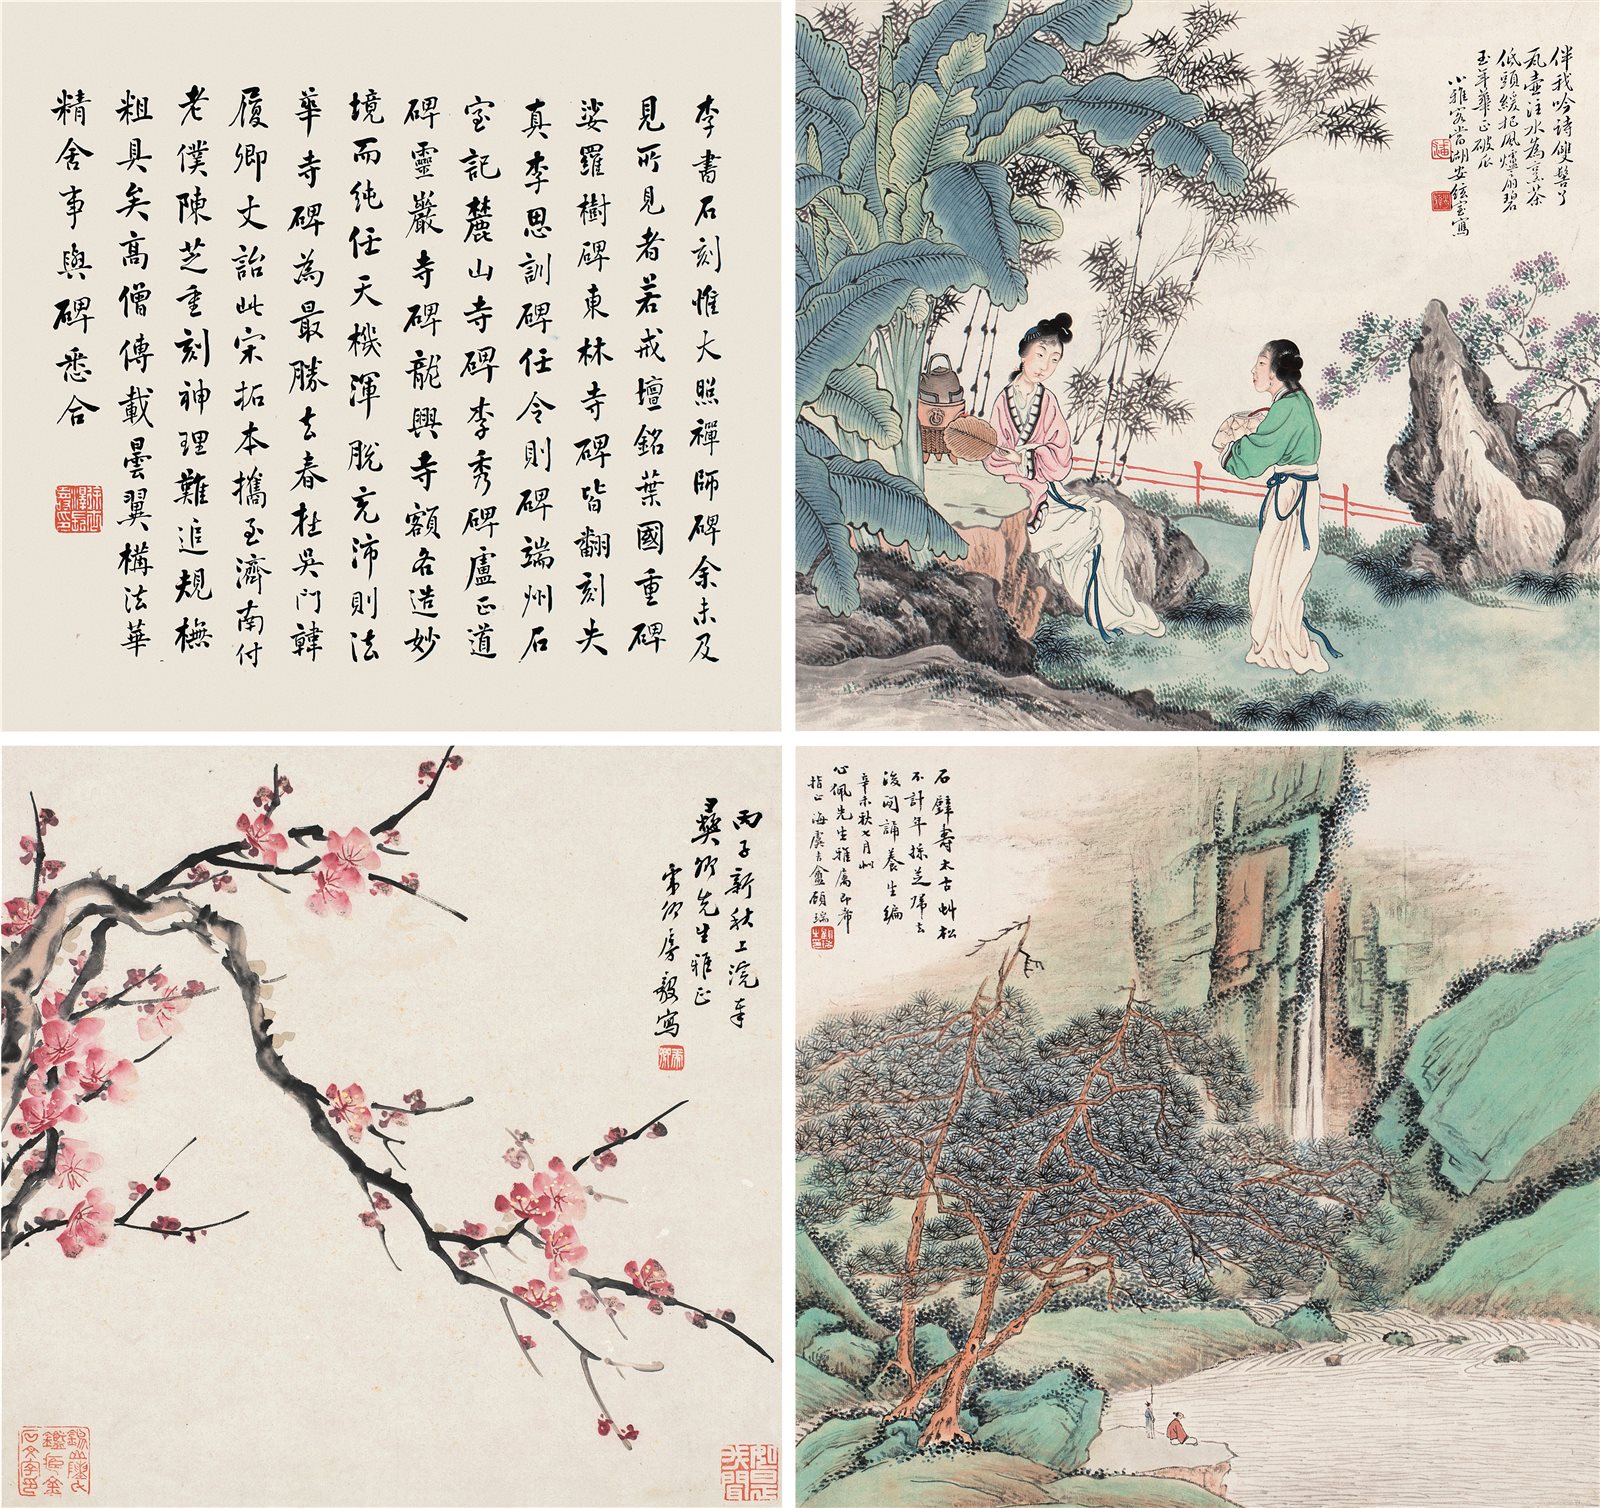 李書石刻惟大照禪師碑余未及
見所見者若戒壇銘葉國重碑
娑羅樹碑東林寺碑皆翻刻失
真李思訓碑任令則碑端州石
室記麓山寺碑李秀碑盧正道
碑靈巖寺碑龍興寺額各造妙
境而純任天機渾脫充沛則法
華寺碑為最勝去春在吳門韓
履卿丈詒此宋拓本攜至濟南付
老僕陳芝重刻神理難追規橅
粗具矣高僧傳載曇翼構法華
精舍事與碑悉合
伴我吟詩雙髻丫
瓦壺注水為煮茶
低頭緩把風爐扇碧
玉年華正破瓜
小雅客當湖安鉉寫
丙子新秋上浣奉
彝卿先生雅正
霖卿房毅寫
石壁壽太古虯松
不計年採芝歸去
後閒誦養生編
辛未秋七月
心佩先生雅屬即希
指正海虞